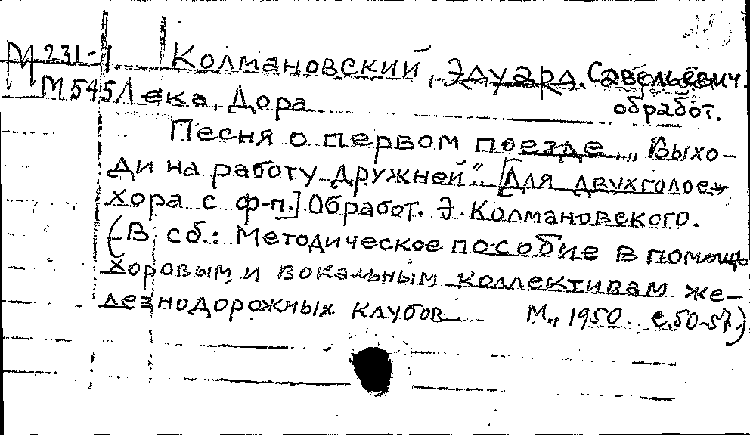 М 231-1. Колмановский, Эдуард Савельевич.
обработ.
М 545 Лека, Дора
Песня о первом поезде „Выхо-
ди на работу дружней“ [для двухголосн
хора с ф-п.] Обработ. Э. Колмановского.
(В сб.: Методическое пособие в помощь
хоровым и вокальным коллективам же-
лезнодорожных клубов М., 1950. с.50-57.)